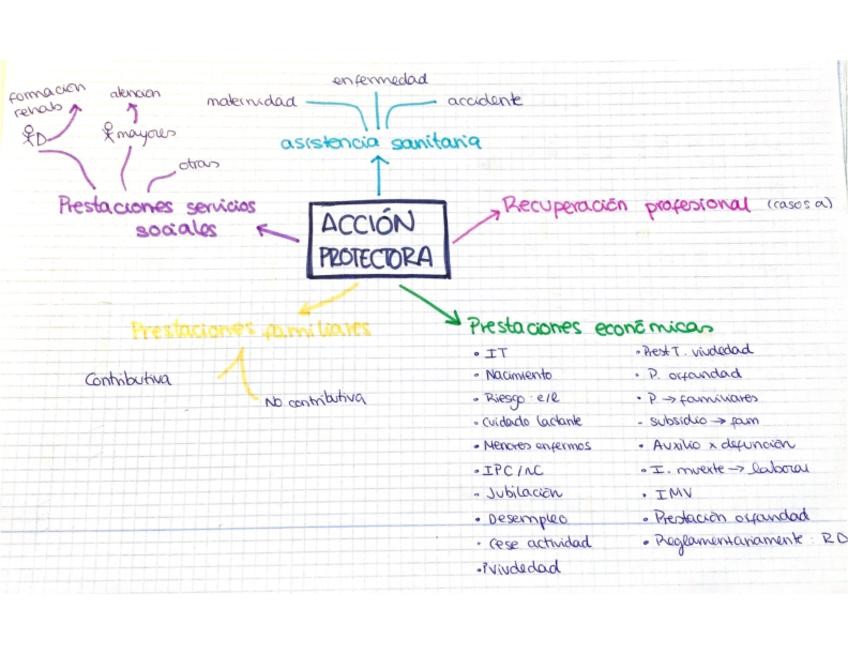 formación
rehab
D
atención
mayores
otras
Prestaciones servicios
sociales
enfermedad
maternidad
accidente
asistencia sanitaria
ACCIÓN
PROTECTORA
Recuperación profesional (casos a)
Prestaciones familiares
Contributiva
No contributiva
Prestaciones económicas
• IT
• Nacimiento
• Riesgo e/l
• Cuidado lactante
• Menores enfermos
• IPC/NC
- Jubilación
• Desempleo
• Cese actividad
• P viudedad
• Prest T. viudedad
• P. orfandad
• P → familiares
- subsidio → fam
• Auxilio x defunción
• I. muerte → laboral
• IMV
• Prestación orfandad
• Reglamentariamente: RD